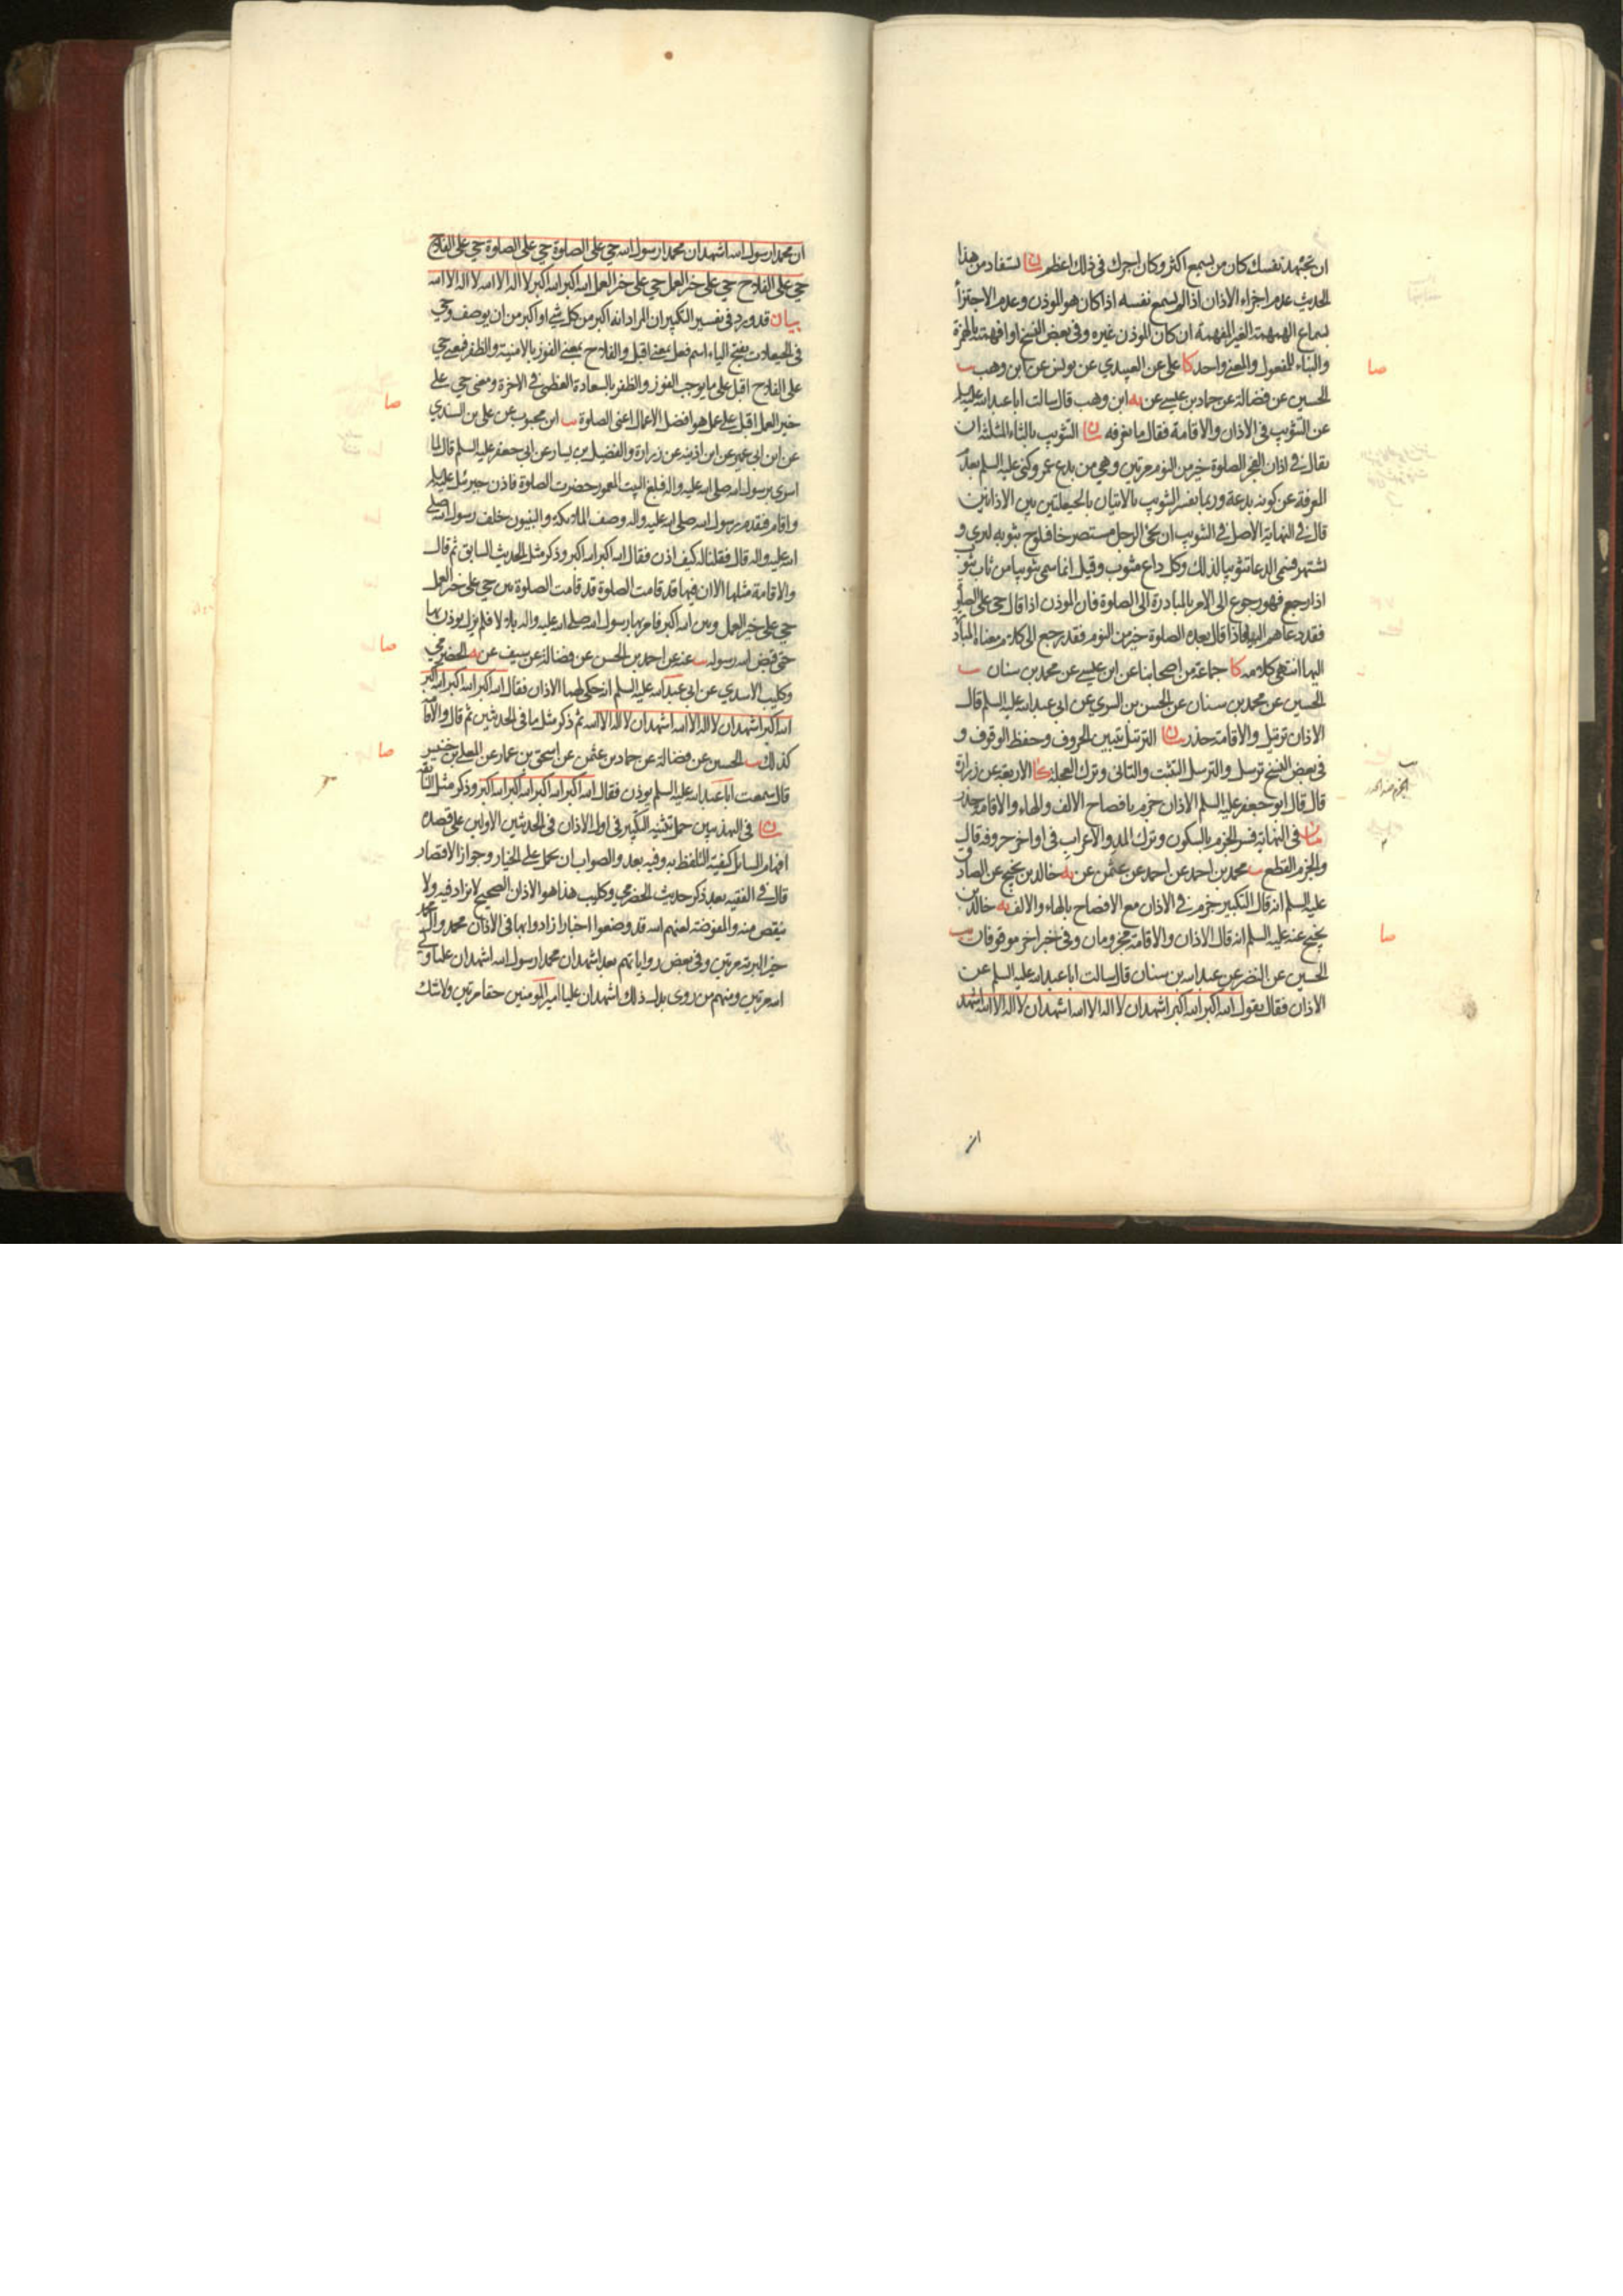 ان تجهد نفسك كان من يسمع اكثر وكان اجرك فى ذلك اعظم بيان يستفاد من هذا
الحديث عدم اجزاء الاذان اذا لم يسمع نفسه اذا كان هو الموذن وعدم الاجتزأ
بسماع الهمهمة الغير المفهمة ان كان الموذن غيره وفى بعض النسخ او افهمته بالهمزة
والبناء للمفعول والمعنى واحد كا على عن العبيدي عن يونس عن ابن وهب يب
الحسين عن فضالة عن حماد بن عيسى عن يه ابن وهب قال سالت ابا عبد الله عليه السلم
عن التثويب فى الاذان والاقامة فقال ما نعرفه بيان التثويب بالثاء المثلثة ان
يقال فى اذان الفجر الصلوة خير من النوم مرتين وهى من بدع عمر وكنى عليه السلم بعدم
المعرفة عن كونه بدعة وربما يفسر التثويب بالاتيان بالحيعلتين بين الاذانين
قال فى النهاية الاصل فى التثويب ان يجئ الرجل مستصرخا فيلوح بثوبه ليرى و
يشتهر فسمى الدعا تثويبا لذلك وكل داع مثوب وقيل انما سمى تثويبا من ثاب يثوب
اذا رجع فهو رجوع الى الامر بالمبادرة الى الصلوة فان الموذن اذا قال حى على الصلوة
فقد دعاهم اليها فاذا قال بعده الصلوة خير من النوم فقد رجع الى كلام معناه المبادرة
اليها انتهى كلامه كا جماعة من اصحابنا عن ابن عيسى عن محمد بن سنان يب
الحسين عن محمد بن سنان عن الحسن بن السري عن ابى عبد الله عليه السلم قال
الاذان ترتيل والاقامة حدر بيان الترتيل تبيين الحروف وحفظ الوقوف و
فى بعض النسخ ترسل والترسل التثبت والتانى وترك العجلة كا الاربعة عن زرارة
قال قال ابو جعفر عليه السلم الاذان جزم بافصاح الالف والهاء والاقامة حدر
بيان فى النهاية فسر الجزم بالسكون وترك المد والاعراب فى اواخر حروفه قال
والجزم القطع يب محمد بن احمد عن احمد عن عثمن عن يه خالد بن نجيح عن الصادق
عليه السلم انه قال التكبير جزم فى الاذان مع الافصاح بالهاء والالف يه خالد بن
نجيح عنه عليه السلم انه قال الاذان والاقامة مجزومان وفى خبر اخر موقوفان يب
الحسين عن النضر عن عبد الله بن سنان قال سالت ابا عبد الله عليه السلم عن
الاذان فقال يقول الله اكبر الله اكبر اشهد ان لا اله الا الله اشهد ان لا اله الا الله اشهد
صا
صا
ان محمدا رسول الله اشهد ان محمدا رسول الله حي على الصلوة حي على الصلوة حي على الفلاح
حي على الفلاح حي على خير العمل حي على خير العمل الله اكبر الله اكبر لا اله الا الله لا اله الا الله
بيان قد ورد فى تفسير التكبير ان المراد انه اكبر من كل شى او اكبر من ان يوصف وحي
فى الحيعلات بفتح الياء اسم فعل بمعنى اقبل والفلاح بمعنى الفوز بالامنية والظفر فمعنى حي
على الفلاح اقبل على ما يوجب الفوز والظفر بالسعادة العظمى فى الاخرة ومعنى حي على
خير العمل اقبل على عمل هو افضل الاعمال اعنى الصلوة يب ابن محبوب عن على بن السندي
عن ابن ابى عمير عن ابن اذينه عن زرارة والفضيل بن يسار عن ابى جعفر عليه السلم قال لما
اسرى برسول الله صلى الله عليه واله فبلغ البيت المعمور حضرت الصلوة فاذن جبرئيل عليه السلم
واقام فتقدم رسول الله صلى الله عليه واله وصف الملائكة والنبيون خلف رسول الله صلى
الله عليه واله قال فقلنا له كيف اذن فقال الله اكبر الله اكبر وذكر مثل الحديث السابق ثم قال
والاقامة مثلها الا ان فيها قد قامت الصلوة قد قامت الصلوة بين حي على خير العمل
حي على خير العمل وبين الله اكبر فامر بها رسول الله صلى الله عليه واله بلالا فلم يزل يوذن بها
حتى قبض الله رسوله يب عنه عن احمد بن الحسن عن فضالة عن سيف عن يه الحضرمي
وكليب الاسدي عن ابى عبد الله عليه السلم انه حكى لهما الاذان فقال الله اكبر الله اكبر الله اكبر
الله اكبر اشهد ان لا اله الا الله اشهد ان لا اله الا الله ثم ذكر مثل ما فى الحديثين ثم قال والاقامة
كذلك يب الحسين عن فضالة عن حماد بن عثمن عن اسحق بن عمار عن المعلى بن خنيس
قال سمعت ابا عبد الله عليه السلم يوذن فقال الله اكبر الله اكبر الله اكبر الله اكبر وذكر مثل السابق
بيان فى التهذيبين حمل تثنية التكبير فى اول الاذان فى الحديثين الاولين على قصده
افهام السائل كيفية التلفظ به وفيه بعد والصواب ان يحمل على الخيار وجواز الاقتصار
قال فى الفقيه بعد ذكر حديث الحضرمي وكليب هذا هو الاذان الصحيح لا يزاد فيه ولا
ينقص منه والمفوضة لعنهم الله قد وضعوا اخبارا زادوا بها فى الاذان محمد وال محمد
خير البرية مرتين وفى بعض رواياتهم بعد اشهد ان محمدا رسول الله اشهد ان عليا ولى
الله مرتين ومنهم من روى بدل ذلك اشهد ان عليا امير المومنين حقا مرتين ولا شك
صا
صا
صا